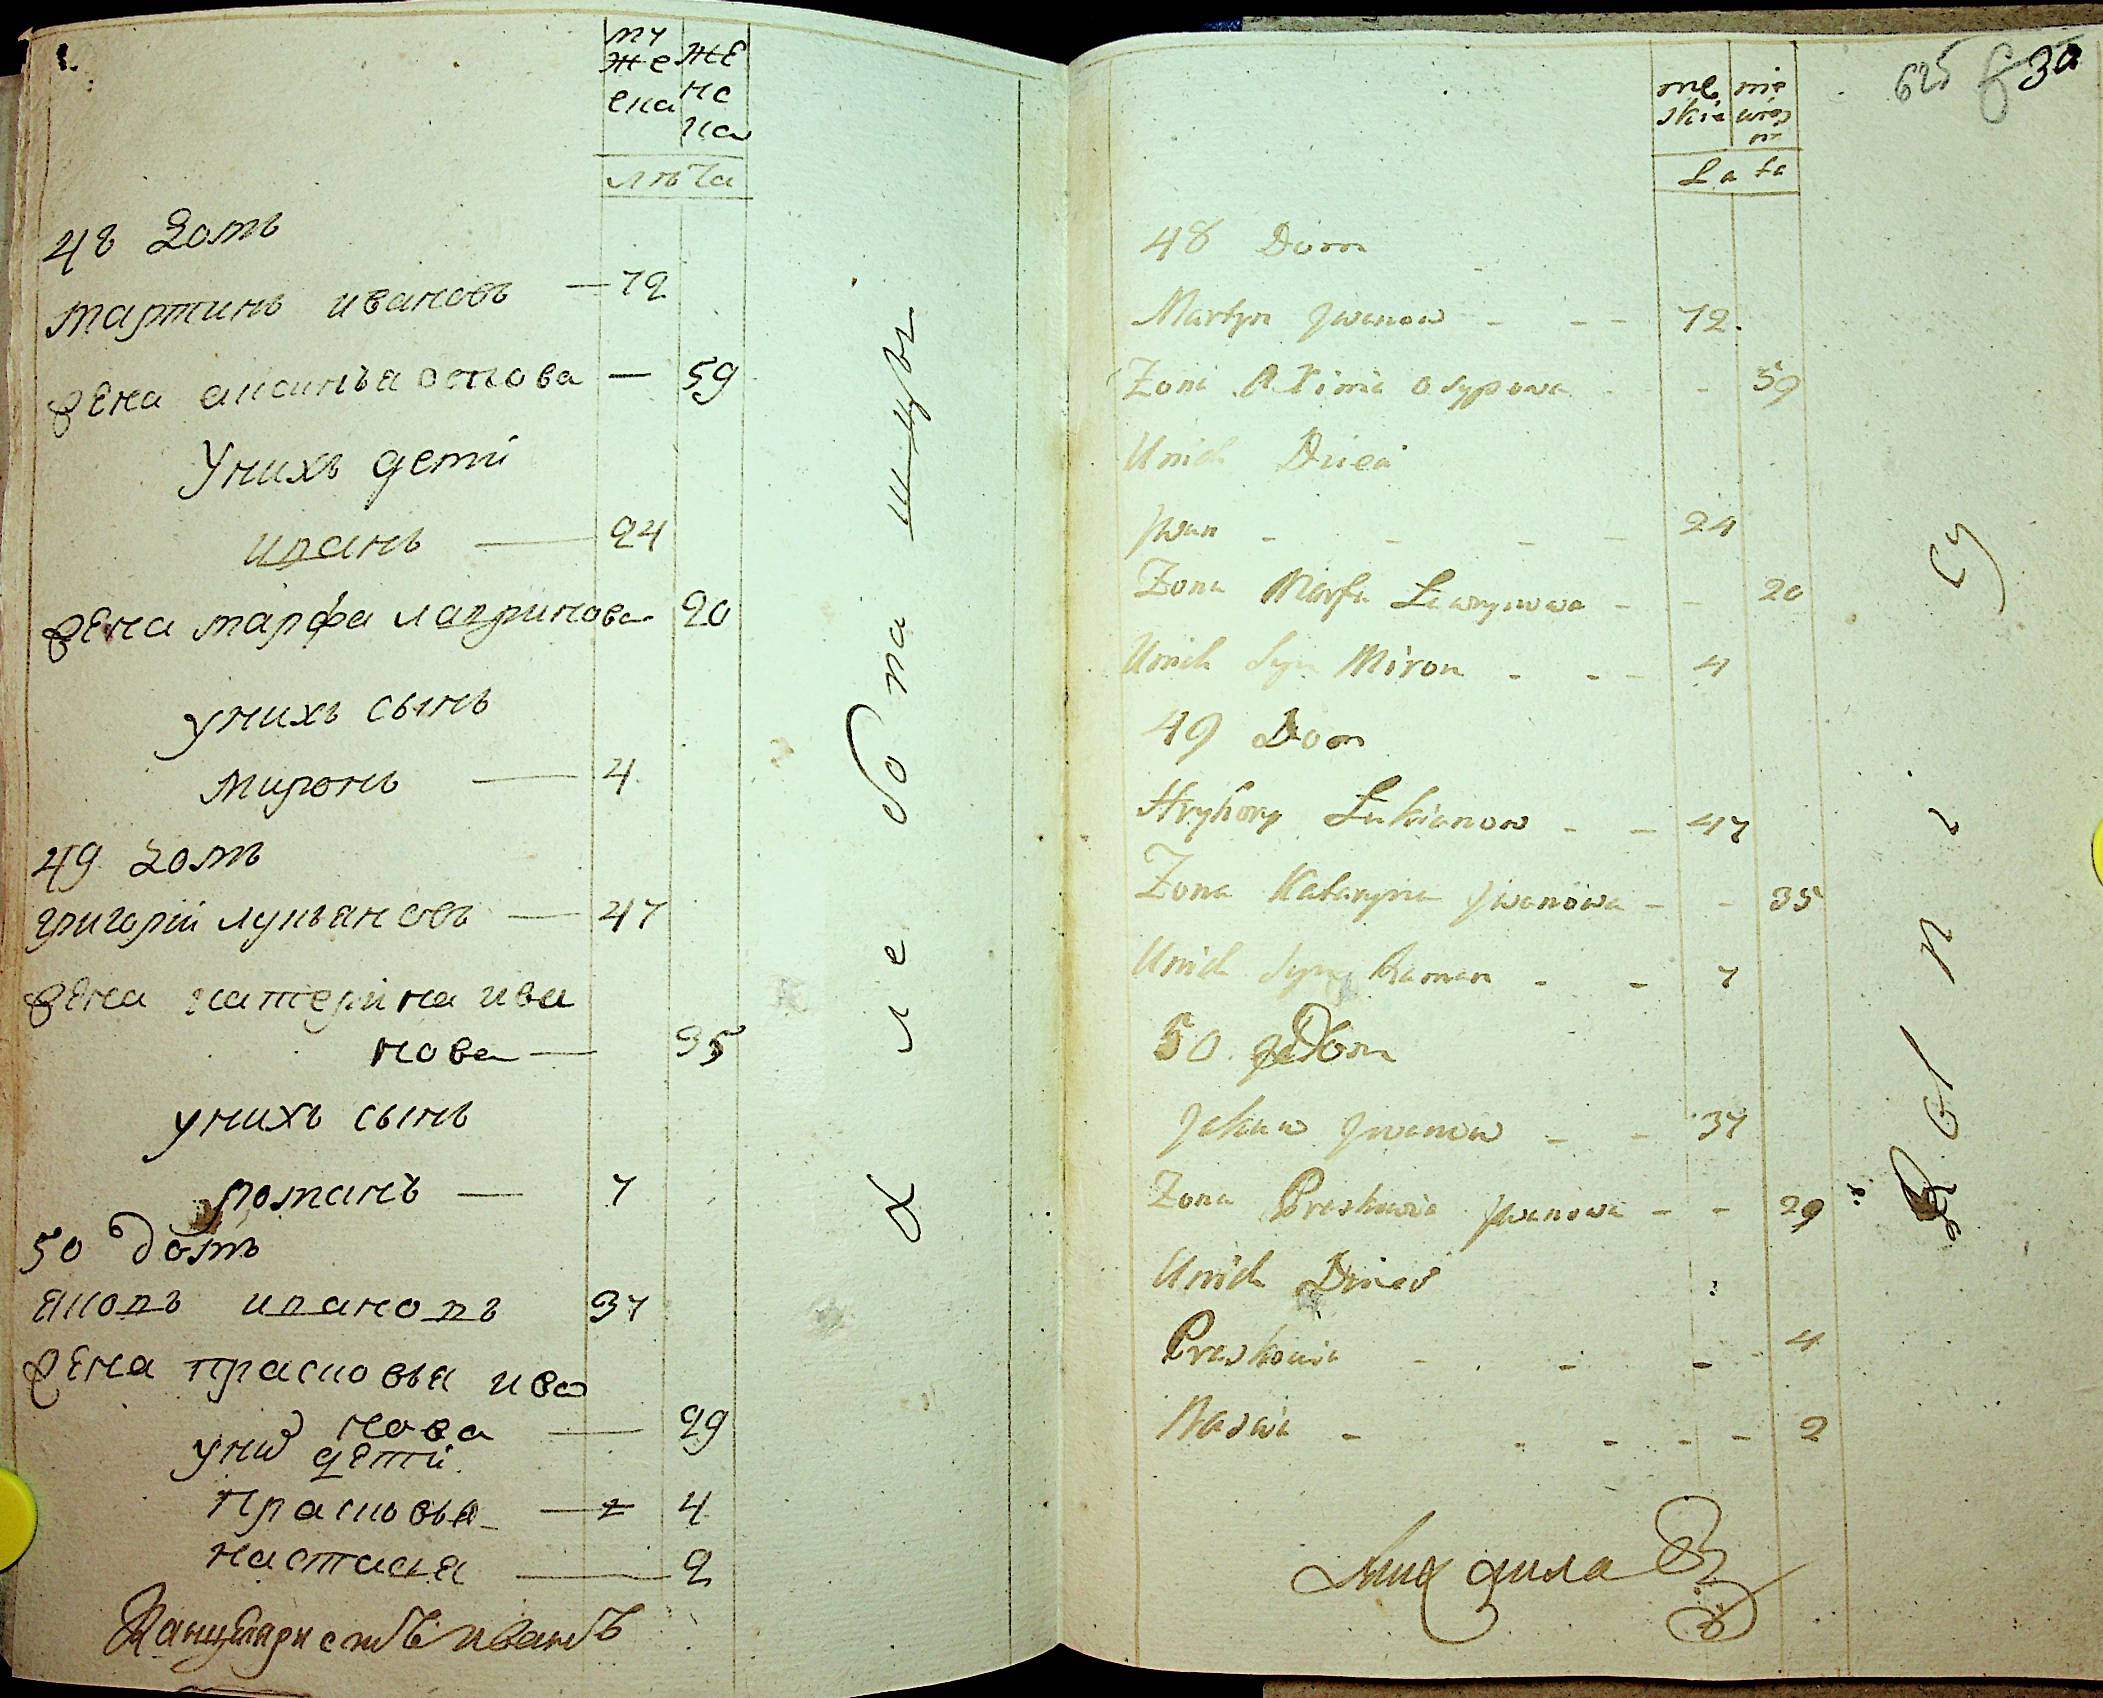 му
же
ска
же
нс
ка
лѣта
48 домъ
мартинъ ивановъ — 72
жена аксинъя осипова — 59
Унихъ дети
иванъ — 24
жена марфа лавринова 20
унихъ сынъ
миронъ — 4
49 домъ
григорiй лукъяновъ — 47
жена катерiна ива
нова — 35
унихъ сынъ
романъ — 7
50 домъ
яковъ ивановъ 37
жена прасковья ива
нова — 29
уних дети
прасковья — 4
настася — 2
Канцеляристъ иванъ
625
30
mę
skie
nie
wieś
nie
Lata
48 Dom
Martyn Jwanow - - - 72.
Zona Axinia Osypowa - 59
Unich Dzieci
Jwan - - - - 24
Zona Marfa Lawrynowa - - 20
Unich Syn Miron - - - 4
49 Dom
Hryhory Lukianow - - 47
Zona Kataryna Jwanowa - - 35
Unich Syn Raman - - 7
50 Dom
Jakuw Jwanow - - 37
Zona Preskowia Jwanowa - - 29
Unich Dzieci
Preskowia - - - 4
Nascia - - - - - 2
Михаила